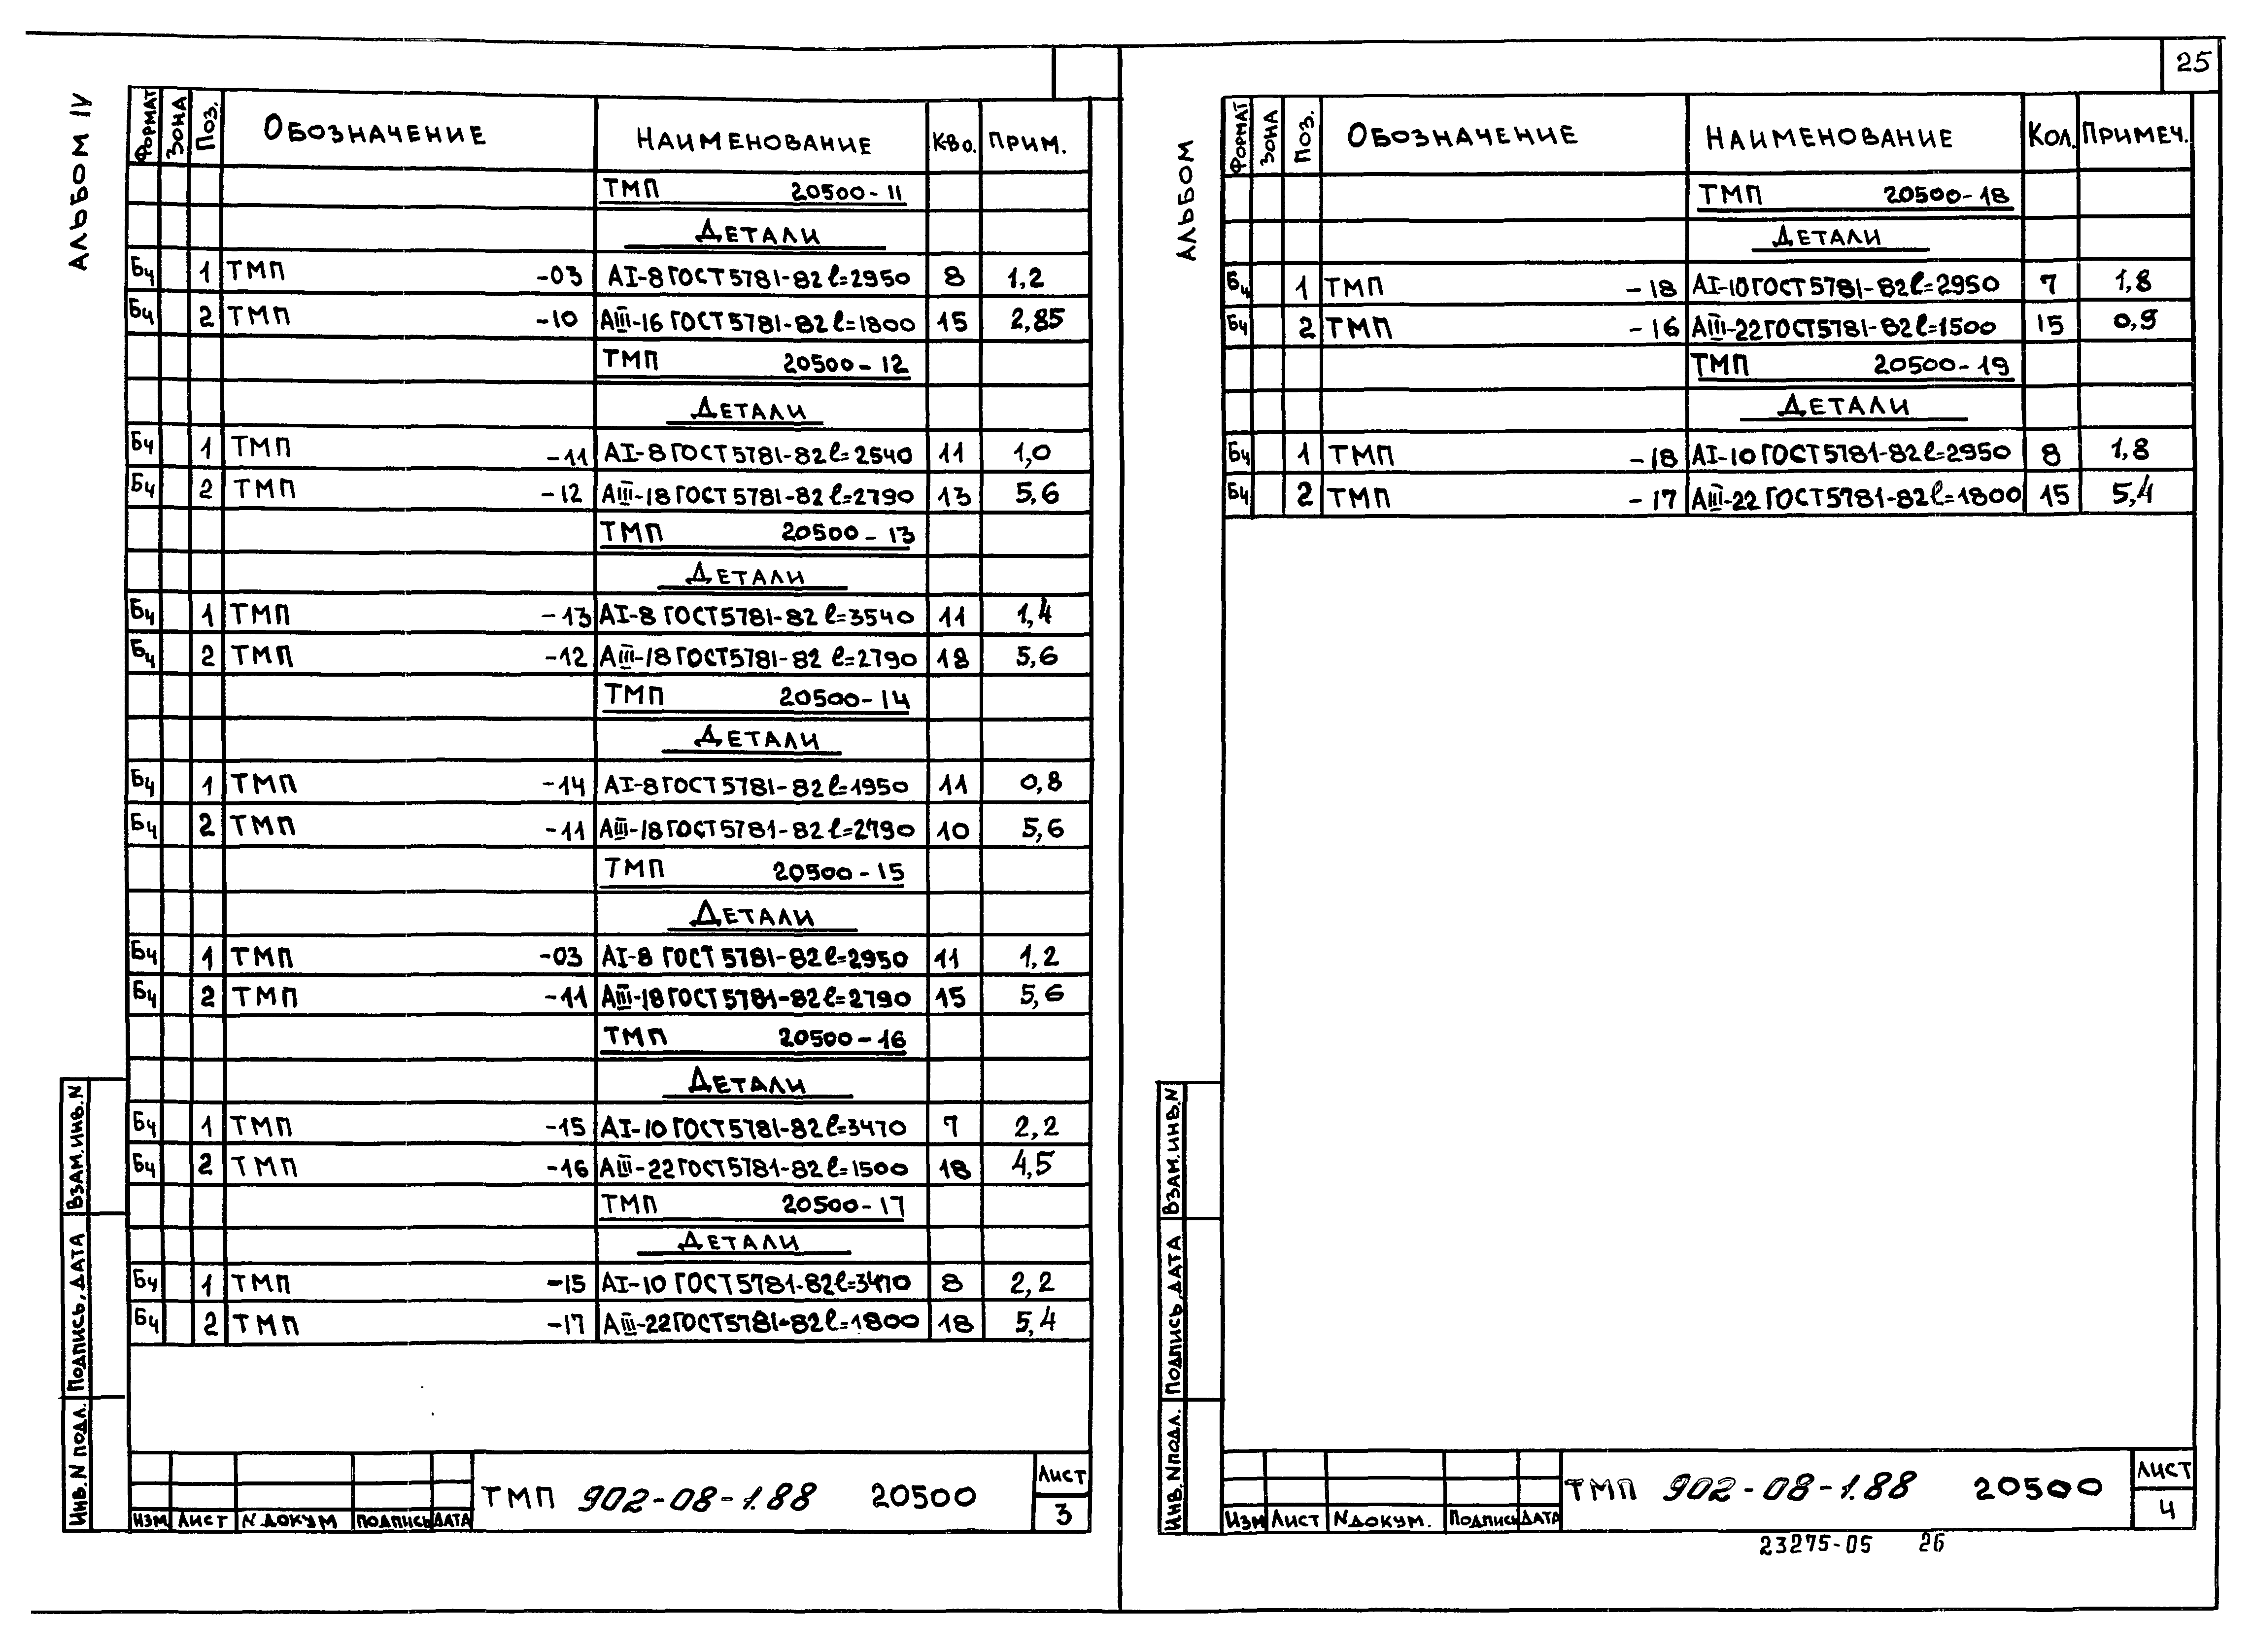 АЛЬБОМ IV
ФОРМАТ ЗОНА ПОЗ. ОБОЗНАЧЕНИЕ НАИМЕНОВАНИЕ К-ВО. ПРИМ.
ТМП 20500-11
ДЕТАЛИ
БЧ 1 ТМП -03 АI-8 ГОСТ 5781-82 ℓ=2950 8 1,2
БЧ 2 ТМП -10 АIII-16 ГОСТ 5781-82 ℓ=1800 15 2,85
ТМП 20500-12
ДЕТАЛИ
БЧ 1 ТМП -11 АI-8 ГОСТ 5781-82 ℓ=2540 11 1,0
БЧ 2 ТМП -12 АIII-18 ГОСТ 5781-82 ℓ=2790 13 5,6
ТМП 20500-13
ДЕТАЛИ
БЧ 1 ТМП -13 АI-8 ГОСТ 5781-82 ℓ=3540 11 1,4
БЧ 2 ТМП -12 АIII-18 ГОСТ 5781-82 ℓ=2790 18 5,6
ТМП 20500-14
ДЕТАЛИ
БЧ 1 ТМП -14 АI-8 ГОСТ 5781-82 ℓ=1950 11 0,8
БЧ 2 ТМП -11 АIII-18 ГОСТ 5781-82 ℓ=2790 10 5,6
ТМП 20500-15
ДЕТАЛИ
БЧ 1 ТМП -03 АI-8 ГОСТ 5781-82 ℓ=2950 11 1,2
БЧ 2 ТМП -11 АIII-18 ГОСТ 5781-82 ℓ=2790 15 5,6
ТМП 20500-16
ДЕТАЛИ
БЧ 1 ТМП -15 АI-10 ГОСТ 5781-82 ℓ=3470 7 2,2
БЧ 2 ТМП -16 АIII-22 ГОСТ 5781-82 ℓ=1500 18 4,5
ТМП 20500-17
ДЕТАЛИ
БЧ 1 ТМП -15 АI-10 ГОСТ 5781-82 ℓ=3470 8 2,2
БЧ 2 ТМП -17 АIII-22 ГОСТ 5781-82 ℓ=1800 18 5,4
ИНВ. N ПОДЛ. ПОДПИСЬ, ДАТА ВЗАМ. ИНВ. N
ИЗМ ЛИСТ N ДОКУМ ПОДПИСЬ ДАТА
ТМП 902-08-1.88 20500
ЛИСТ
3
25
АЛЬБОМ
ФОРМАТ ЗОНА ПОЗ. ОБОЗНАЧЕНИЕ НАИМЕНОВАНИЕ КОЛ. ПРИМЕЧ.
ТМП 20500-18
ДЕТАЛИ
БЧ 1 ТМП -18 АI-10 ГОСТ 5781-82 ℓ=2950 7 1,8
БЧ 2 ТМП -16 АIII-22 ГОСТ 5781-82 ℓ=1500 15 0,9
ТМП 20500-19
ДЕТАЛИ
БЧ 1 ТМП -18 АI-10 ГОСТ 5781-82 ℓ=2950 8 1,8
БЧ 2 ТМП -17 АIII-22 ГОСТ 5781-82 ℓ=1800 15 5,4
ИНВ. N ПОДЛ. ПОДПИСЬ, ДАТА ВЗАМ. ИНВ. N
ИЗМ ЛИСТ N ДОКУМ. ПОДПИСЬ ДАТА
ТМП 902-08-1.88 20500
ЛИСТ
4
23275-05 26